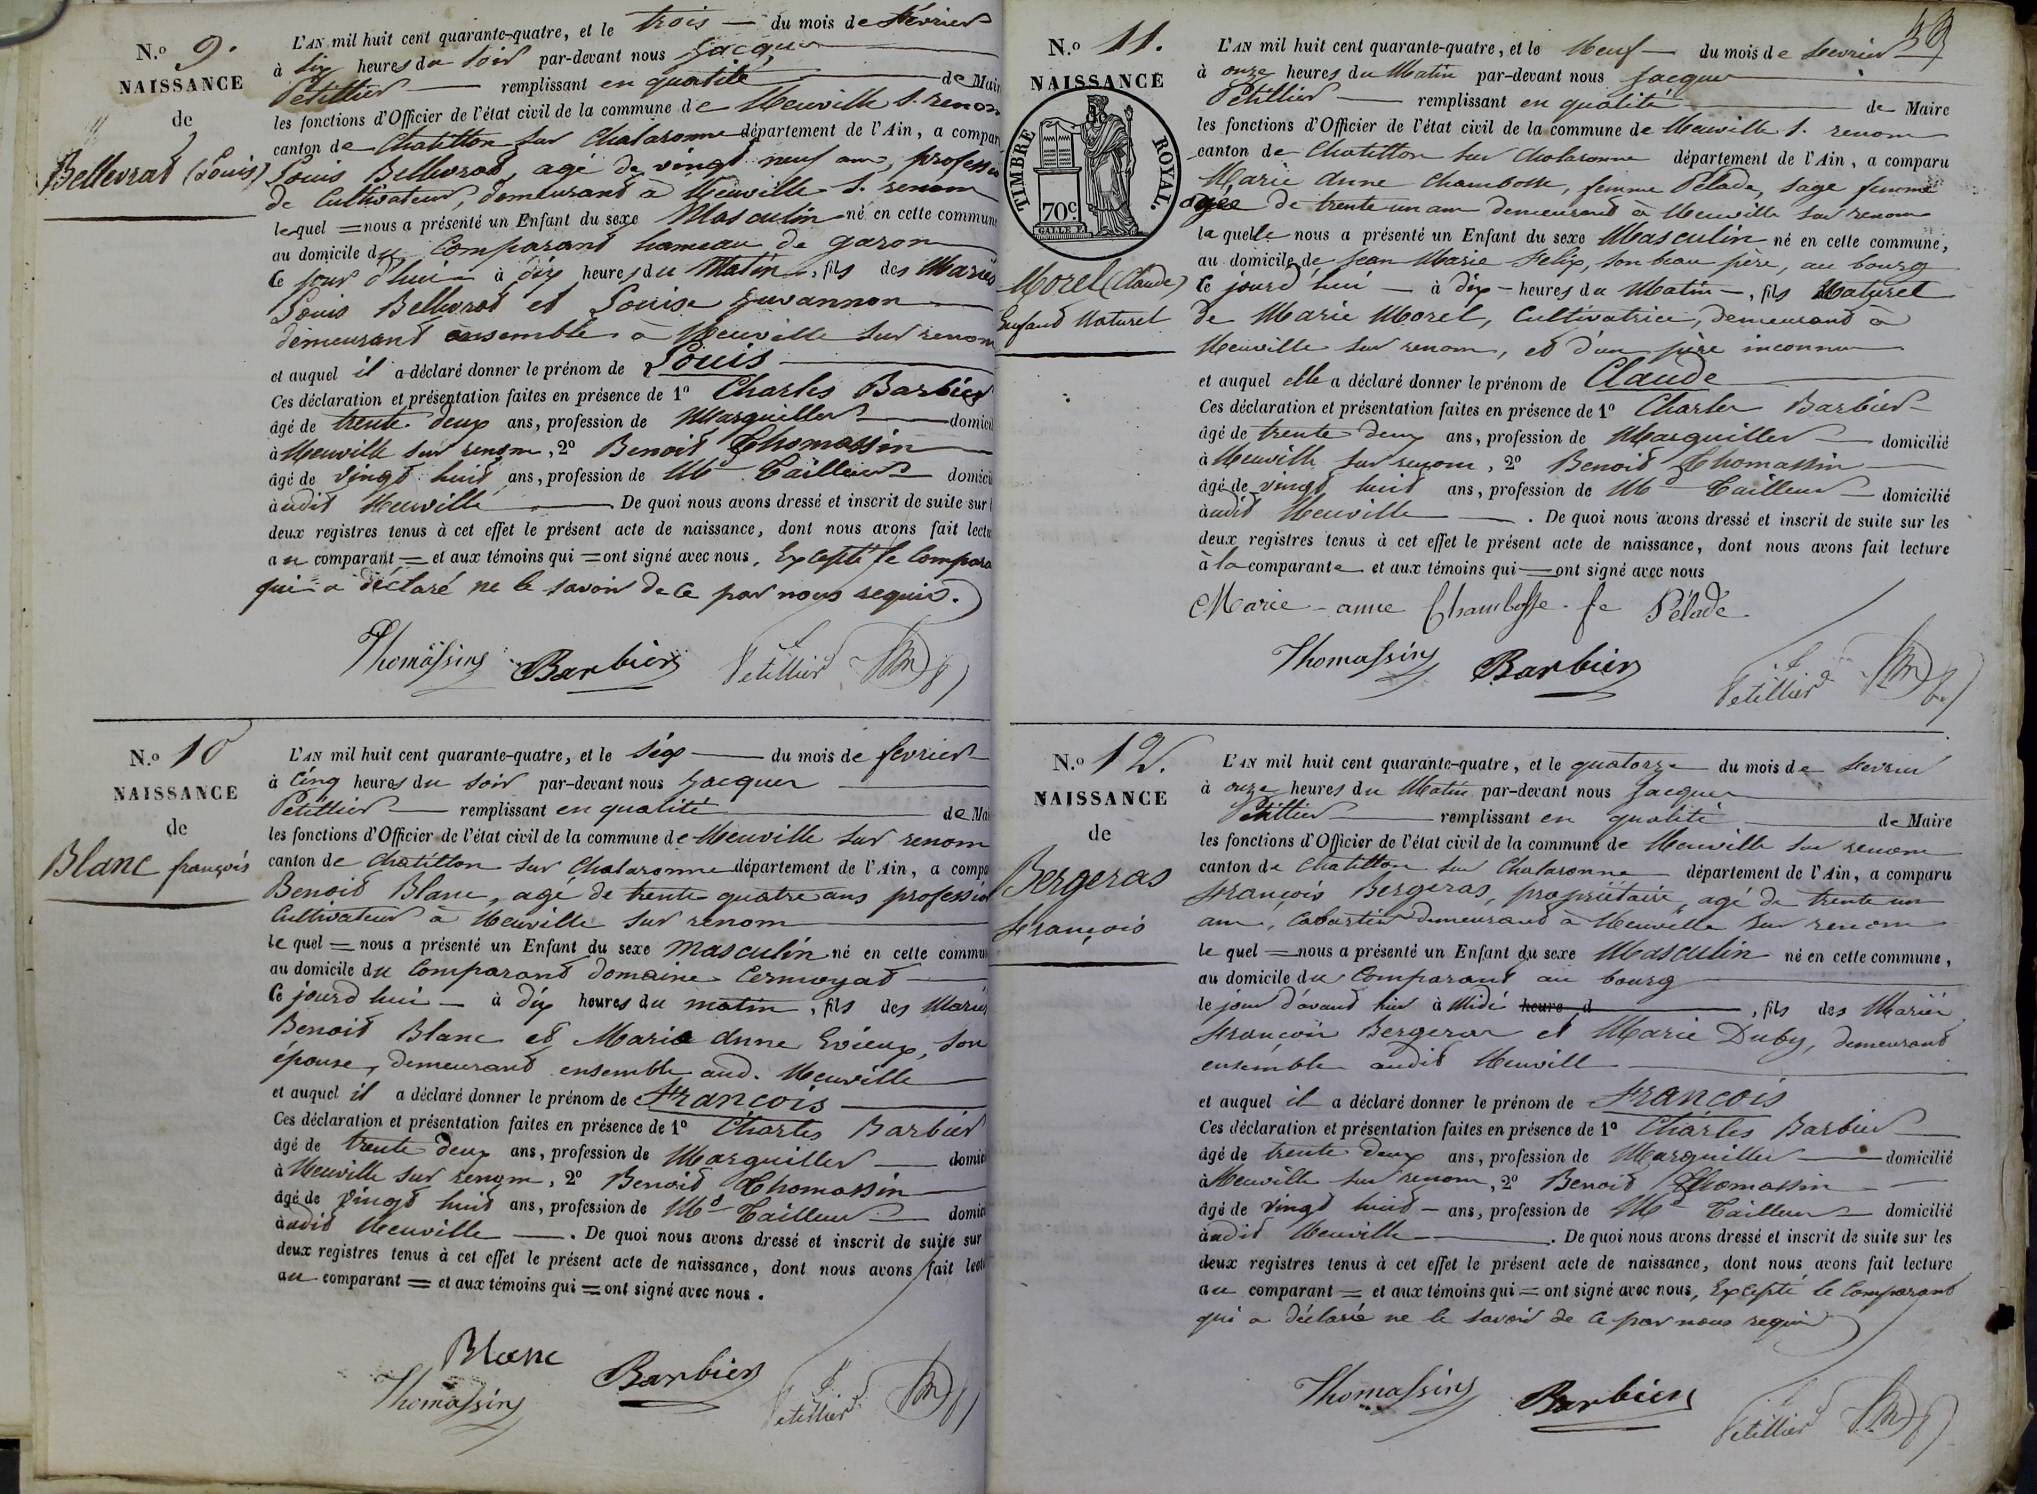 N.o 9.
NAISSANCE
de
Bellevrat (Louis)
L'AN mil huit cent quarante-quatre, et le trois du mois de février
à six heures du soir par-devant nous Jacques
Petillier remplissant en qualité de Mai
les fonctions d'Officier de l'état civil de la commune de Neuville s. renom
canton de Chatillon sur Chalaronne département de l'Ain, a compar
Louis Bellevrat, agé de vingt neuf ans, profession
de Cultivateur, demeurant à Neuville s. renom
lequel = nous a présenté un Enfant du sexe Masculin né en cette commune
au domicile du Comparant hameau de garon
ce jour d'hui à dix heures du Matin, fils des Mariés
Louis Bellevrat et Louise Juvannon
demeurant ensemble à Neuville sur renom
et auquel il a déclaré donner le prénom de Louis
Ces déclaration et présentation faites en présence de 1o Charles Barbier
âgé de trente deux ans, profession de Marguiller domicil
à Neuville sur renom, 2o Benoit Thomassin
âgé de vingt huit ans, profession de Md Tailleur domici
audit Neuville De quoi nous avons dressé et inscrit de suite sur l
deux registres tenus à cet effet le présent acte de naissance, dont nous avons fait lectu
au comparant = et aux témoins qui = ont signé avec nous, Excepté le Compara
qui a déclaré ne le savoir de ce par nous requis.
Thomassin Barbier Petillier
N.o 10
NAISSANCE
de
Blanc françois
L'AN mil huit cent quarante-quatre, et le six du mois de fevrier
à cinq heures du soir par-devant nous Jacques
Petillier remplissant en qualité de Mai
les fonctions d'Officier de l'état civil de la commune de Neuville sur renom
canton de Chatillon sur Chalaronne département de l'Ain, a compa
Benoit Blanc, agé de trente quatre ans profession
Cultivateur à Neuville sur renom
le quel = nous a présenté un Enfant du sexe masculin né en cette commun
au domicile du Comparant domaine Cermoyat
ce jourd'hui à dix heures du matin, fils des Mariés
Benoit Blanc et Marie Anne Evieux, son
épouse, demeurant ensemble aud. Neuville
et auquel il a déclaré donner le prénom de François
Ces déclaration et présentation faites en présence de 1o Charles Barbier
âgé de trente deux ans, profession de Marguiller domici
à Neuville sur renom, 2o Benoit Thomassin
âgé de vingt huit ans, profession de Md Tailleur domici
audit Neuville. De quoi nous avons dressé et inscrit de suite sur
deux registres tenus à cet effet le présent acte de naissance, dont nous avons fait lectu
au comparant = et aux témoins qui = ont signé avec nous.
Blanc
Thomassin Barbier Petillier
N.o 11.
NAISSANCE
TIMBRE ROYAL.
70c.
Morel (Claude)
Enfant Naturel
L'AN mil huit cent quarante-quatre, et le Neuf du mois de fevrier
à onze heures du Matin par-devant nous Jacques
Petillier remplissant en qualité de Maire
les fonctions d'Officier de l'état civil de la commune de Neuville s. renom
canton de Chatillon sur Chalaronne département de l'Ain, a comparu
Marie Anne Chambosse, femme Pélade, sage femme
agée de trente un ans demeurant à Neuville sur renom
la quelle nous a présenté un Enfant du sexe Masculin né en cette commune,
au domicile de Jean Marie Felix, son beau père, au bourg
ce jourd'hui à dix heures du Matin, fils Naturel
de Marie Morel, Cultivatrice, demeurant à
Neuville sur renom, et d'un père inconnu
et auquel elle a déclaré donner le prénom de Claude
Ces déclaration et présentation faites en présence de 1o Charles Barbier
âgé de trente deux ans, profession de Marguiller domicilié
à Neuville sur renom, 2o Benoit Thomassin
âgé de vingt huit ans, profession de Md Tailleur domicilié
audit Neuville. De quoi nous avons dressé et inscrit de suite sur les
deux registres tenus à cet effet le présent acte de naissance, dont nous avons fait lecture
à la comparante et aux témoins qui = ont signé avec nous
Marie-anne Chambosse. fe Pélade
Thomassin Barbier Petillier
N.o 12.
NAISSANCE
de
Bergeras
François
L'AN mil huit cent quarante-quatre, et le quatorze du mois de fevrier
à onze heures du Matin par-devant nous Jacques
Petillier remplissant en qualité de Maire
les fonctions d'Officier de l'état civil de la commune de Neuville sur renom
canton de Chatillon sur Chalaronne département de l'Ain, a comparu
François Bergeras, propriétaire, agé de trente un
ans, Cabartier demeurant à Neuville sur renom
le quel = nous a présenté un Enfant du sexe Masculin né en cette commune,
au domicile du Comparant au bourg
le jour d'avant hier à Midi heure d, fils des Mariés
François Bergeras et Marie Duby, demeurant
ensemble audit Neuville
et auquel il a déclaré donner le prénom de François
Ces déclaration et présentation faites en présence de 1o Charles Barbier
âgé de trente deux ans, profession de Marguiller domicilié
à Neuville sur renom, 2o Benoit Thomassin
âgé de vingt huit ans, profession de Md Tailleur domicilié
audit Neuville. De quoi nous avons dressé et inscrit de suite sur les
deux registres tenus à cet effet le présent acte de naissance, dont nous avons fait lecture
au comparant = et aux témoins qui = ont signé avec nous, Excepté le Comparant
qui a déclaré ne le savoir de ce par nous requis
Thomassin Barbier Petillier